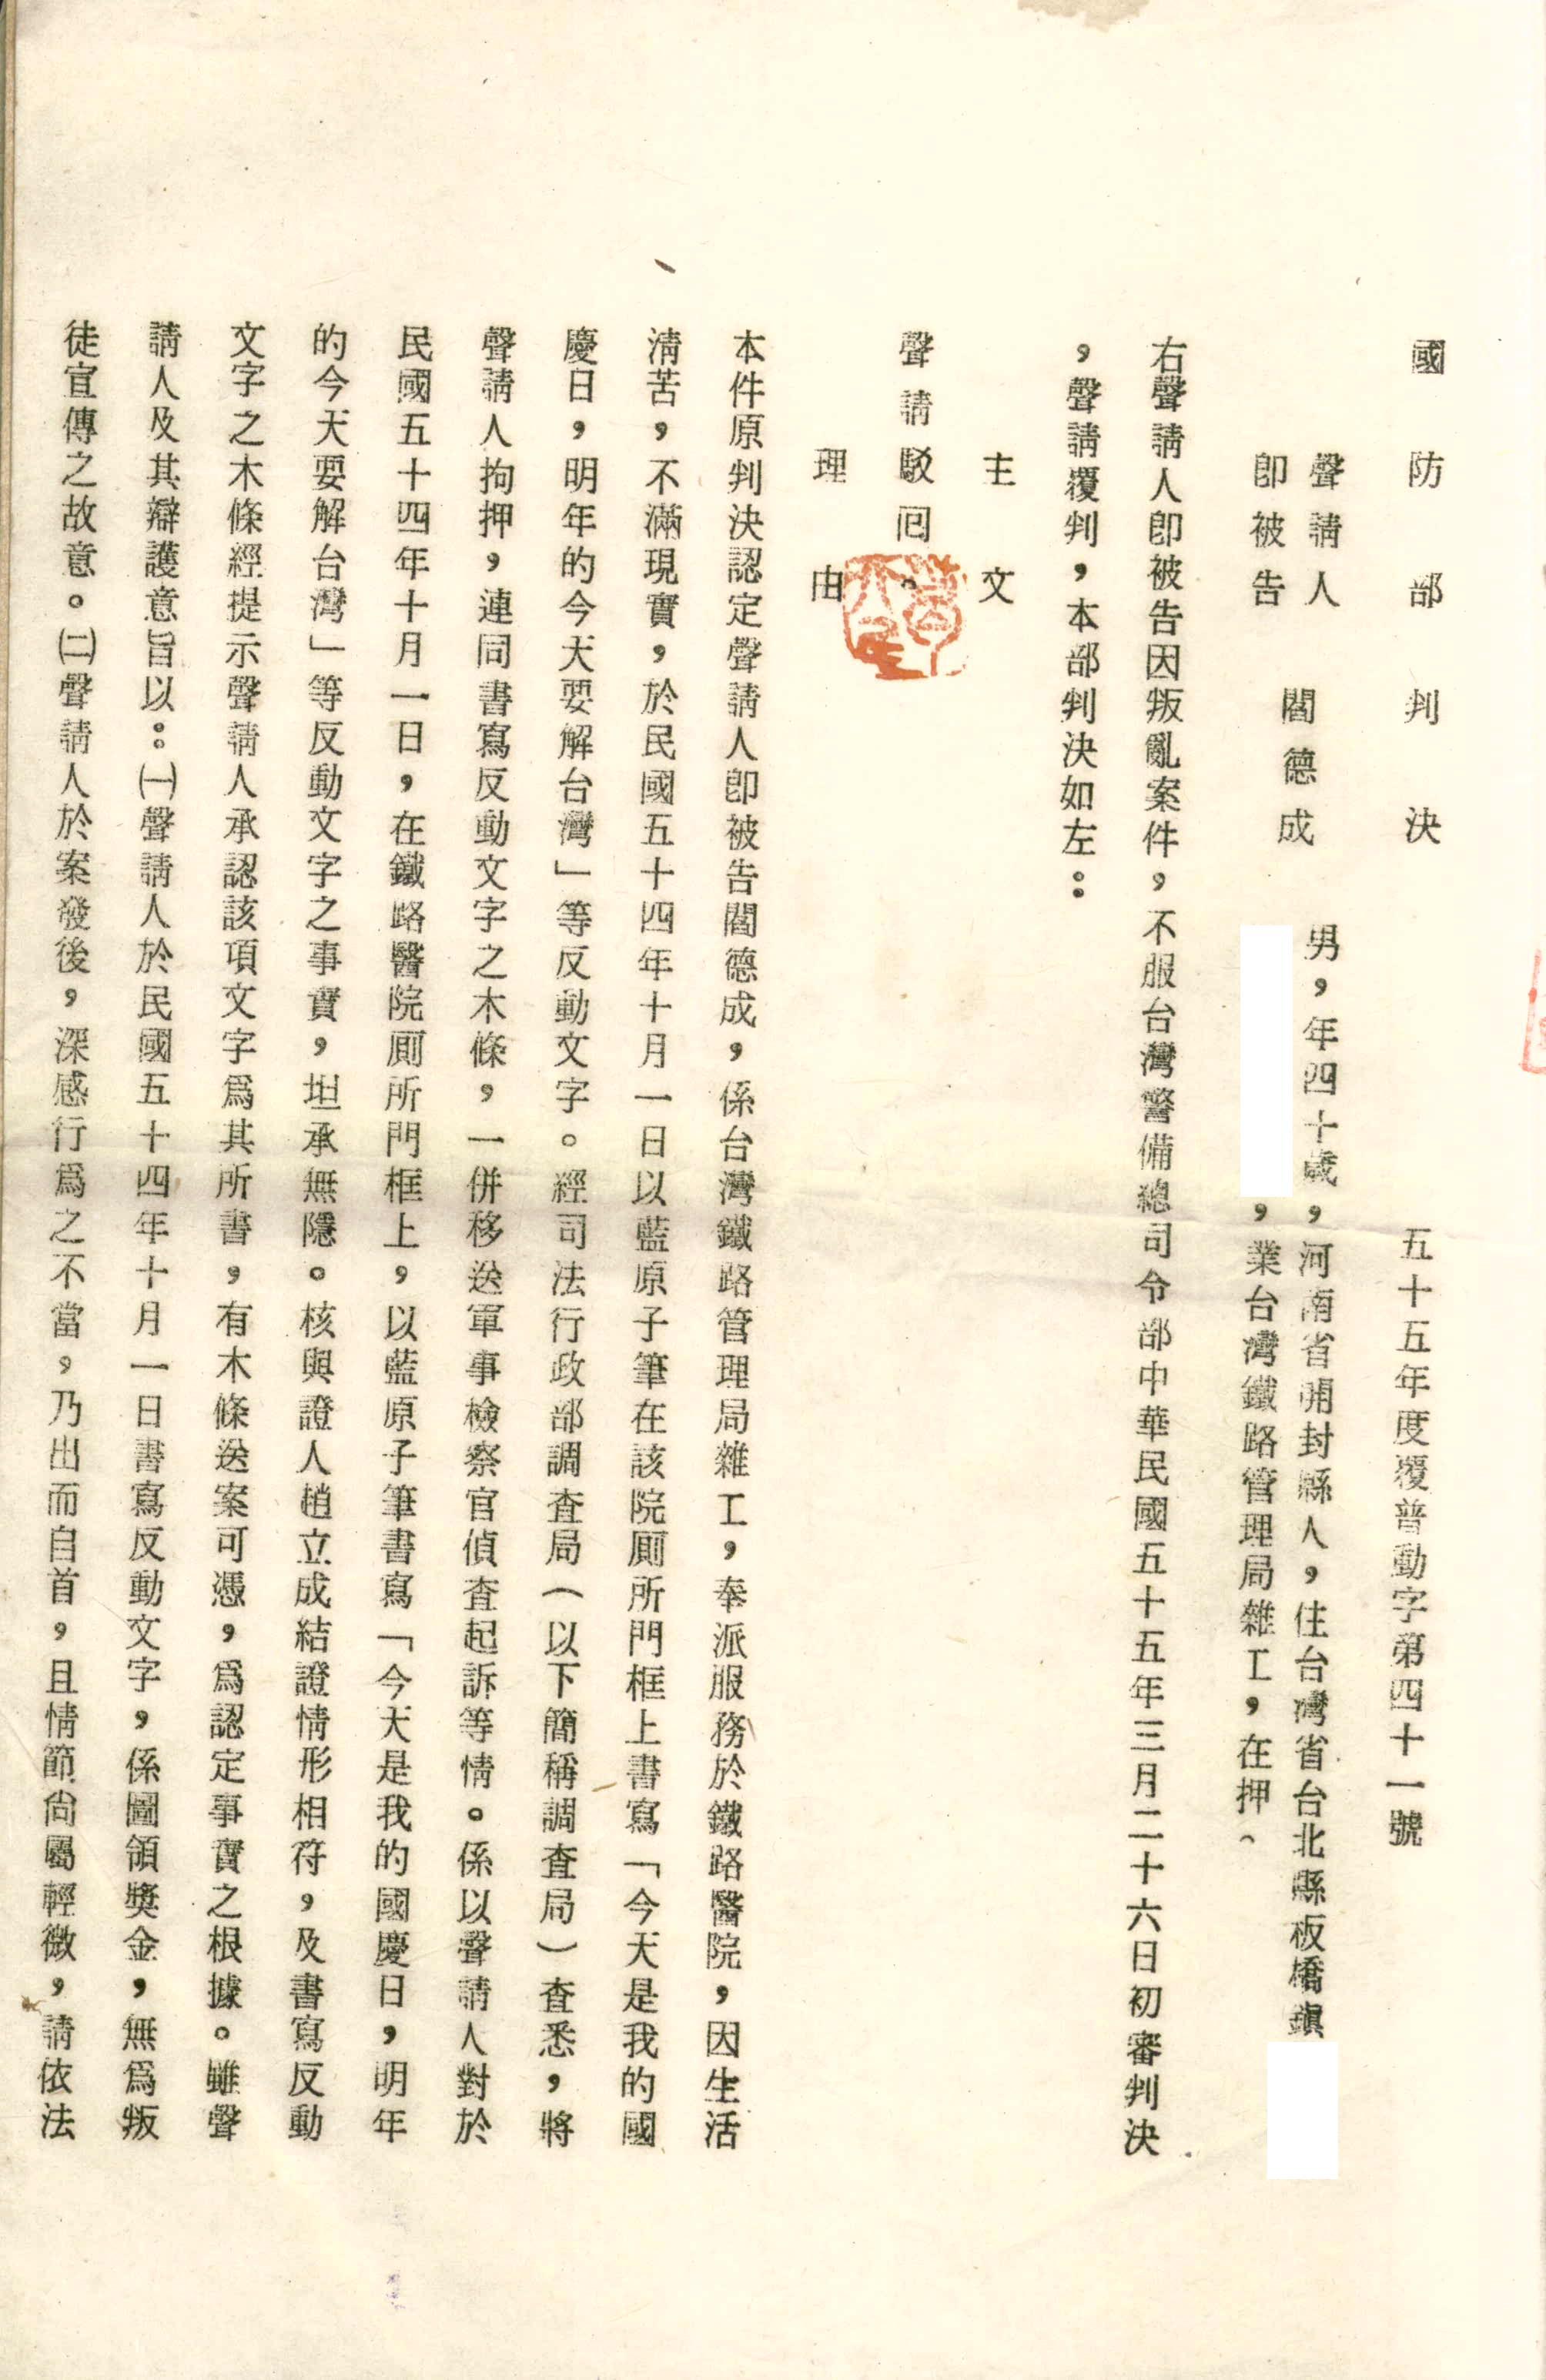 國防部判決
五十五年度覆普動字第四十一號
聲請人
即被告
閻德成
男，年四十歲，河南省開封縣人，住台灣省台北縣板橋鎮
，業台灣鐵路管理局雜工，在押。
右聲請人即被告因叛亂案件，不服台灣警備總司令部中華民國五十五年三月二十六日初審判決
，聲請覆判，本部判決如左：
主文
聲請駁回。
理由
本件原判決認定聲請人即被告閻德成，係台灣鐵路管理局雜工，奉派服務於鐵路醫院，因生活
清苦，不滿現實，於民國五十四年十月一日以藍原子筆在該院厠所門框上書寫「今天是我的國
慶日，明年的今天要解台灣」等反動文字。經司法行政部調查局（以下簡稱調查局）查悉，將
聲請人拘押，連同書寫反動文字之木條，一併移送軍事檢察官偵查起訴等情。係以聲請人對於
民國五十四年十月一日，在鐵路醫院厠所門框上，以藍原子筆書寫「今天是我的國慶日，明年
的今天要解台灣」等反動文字之事實，坦承無隱。核與證人趙立成結證情形相符，及書寫反動
文字之木條經提示聲請人承認該項文字爲其所書，有木條送案可憑，爲認定事實之根據。雖聲
請人及其辯護意旨以：㈠聲請人於民國五十四年十月一日書寫反動文字，係圖領獎金，無爲叛
徒宣傳之故意。㈡聲請人於案發後，深感行爲之不當，乃出而自首，且情節尙屬輕微，請依法